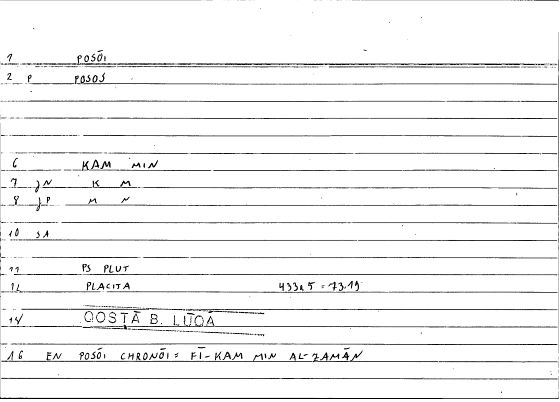 1 POSŌI
2 P POSOS
6 KAM MIN
7 JN K M
8 JP M N
10 SA
11 PS PLUT
12 PLACITA 433a5 = 73.19
14 QOSṬĀ B. LŪQĀ
16 EN POSŌI CHRONŌI = FĪ-KAM MIN AL-ZAMĀN